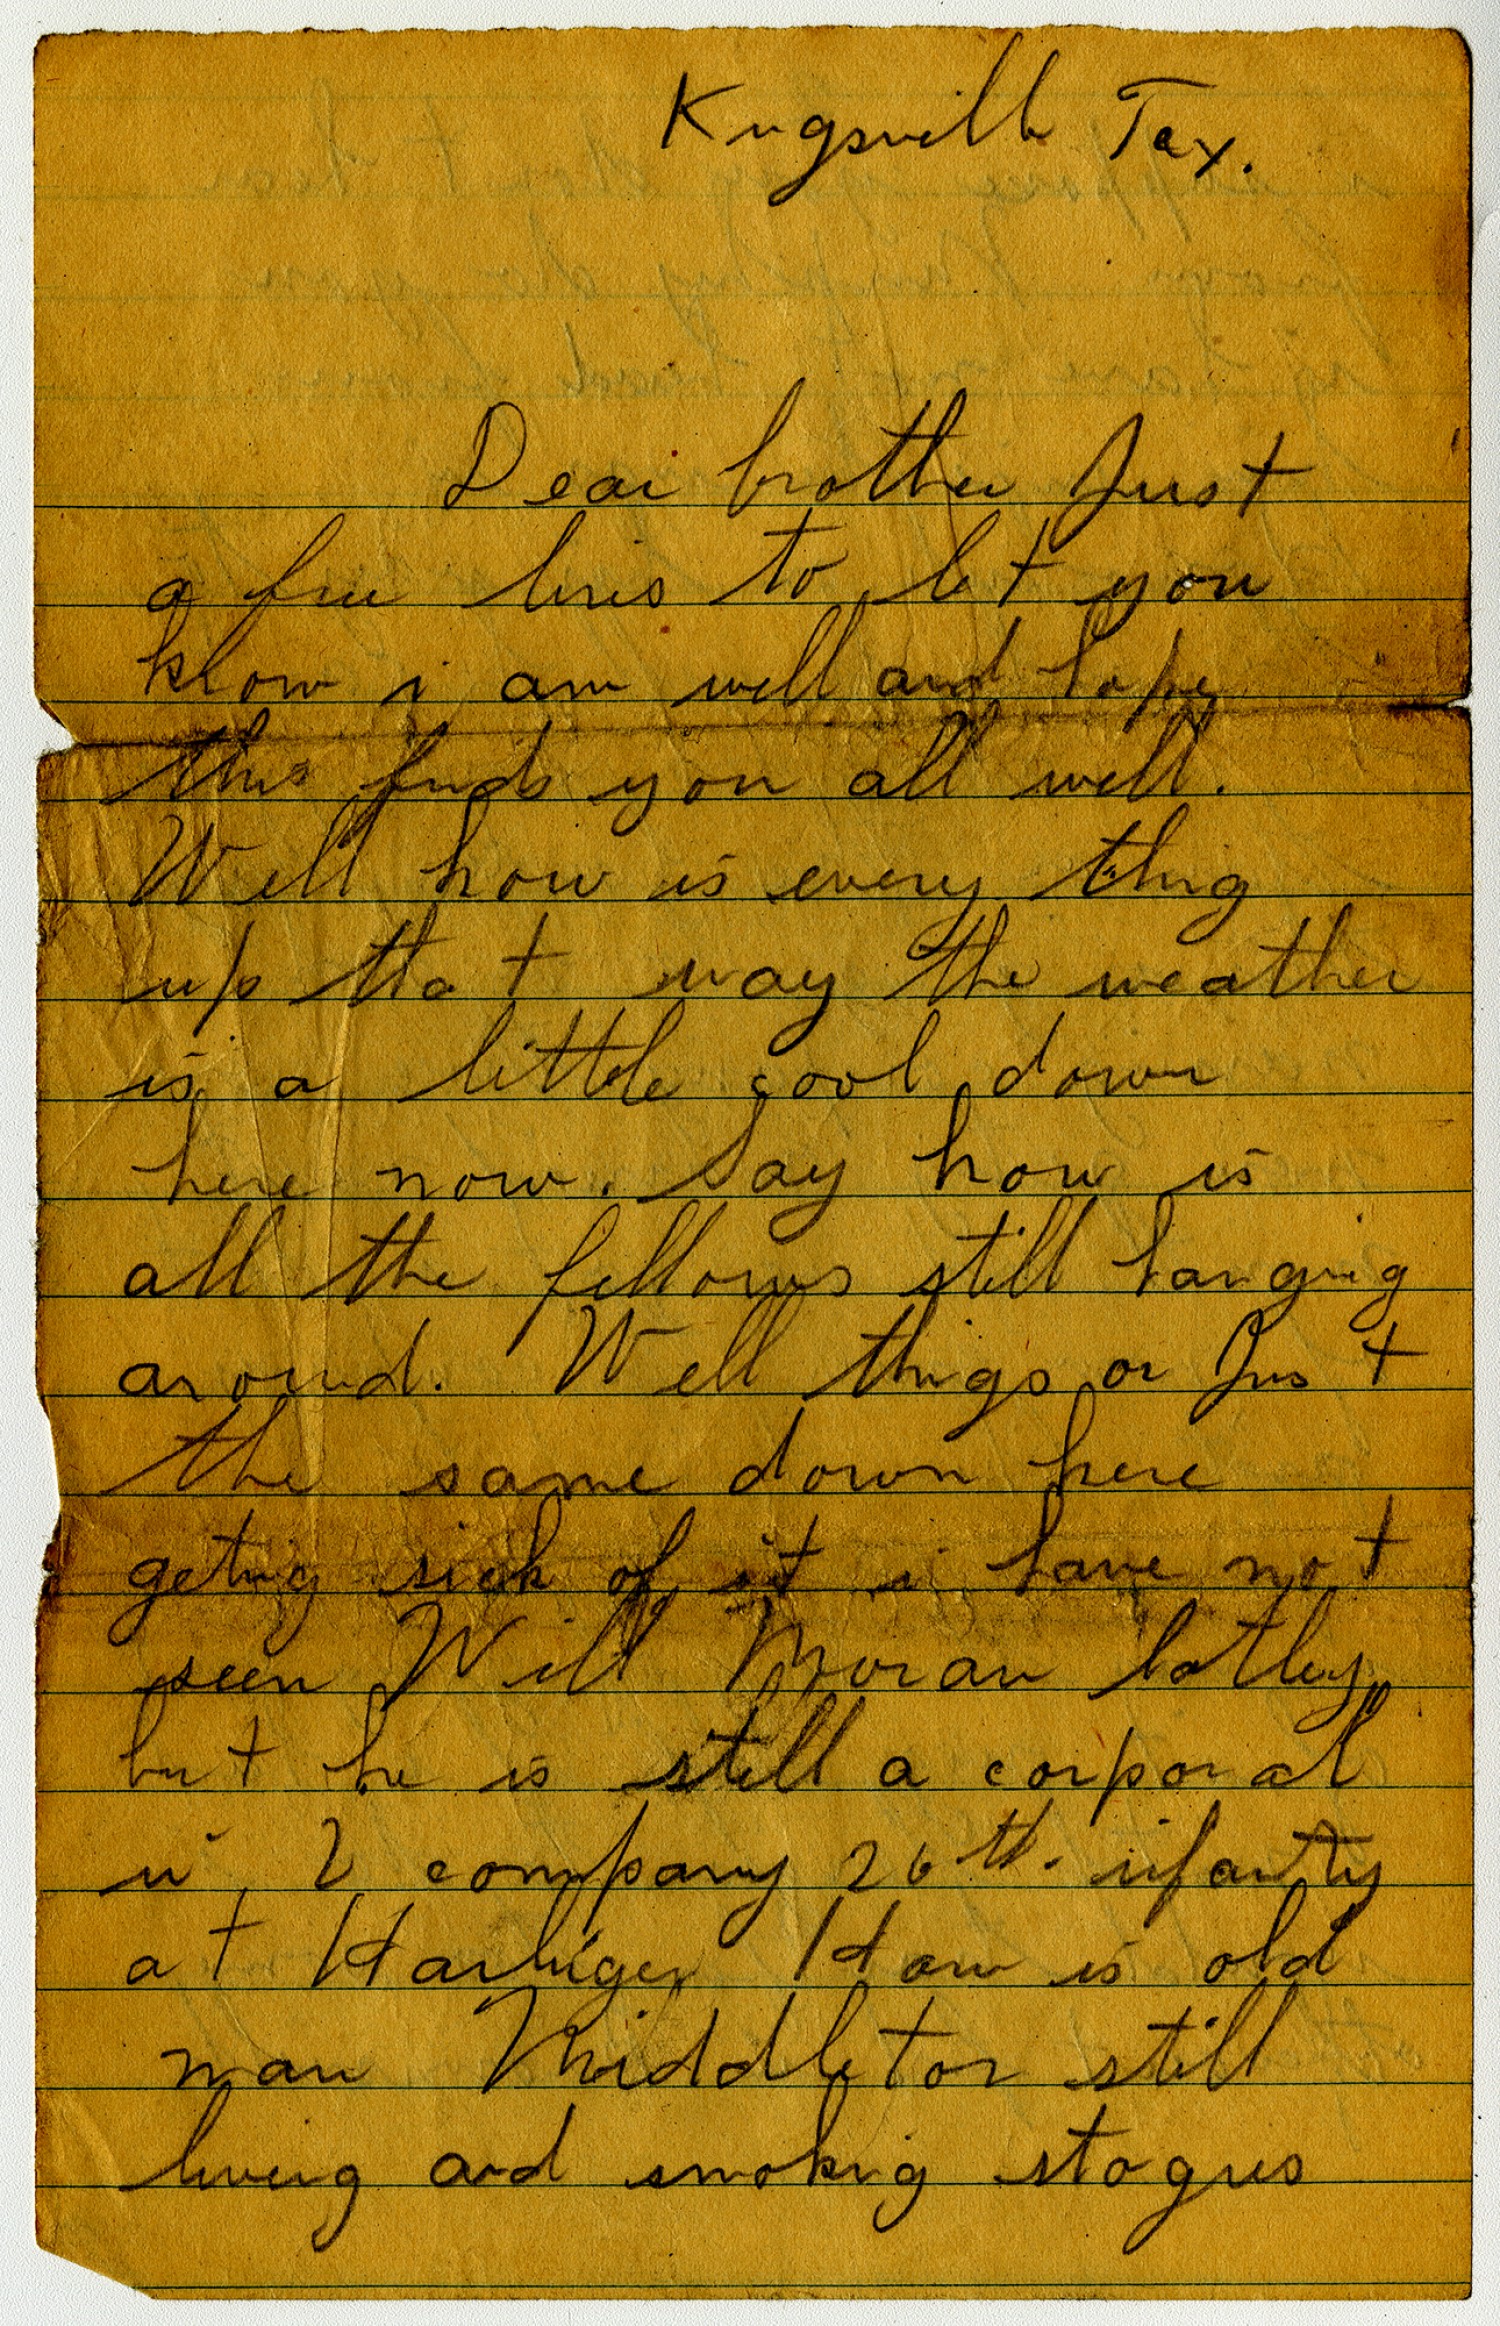 Kingsville Tex.
Dear brother Just
a few lines to let you
know i am well and hope
this finds you all well.
Well how is every thing
up that way the weather
is a little cool down
here now. Say how is
all the fellows still hanging
around. Well things or Just
the same down here
geting sick of it i have not
seen Will Moran latley
but he is still a corporal
in company 26th. infantry
at Harlingen How is old
man Middleton still
living and smoking stogies